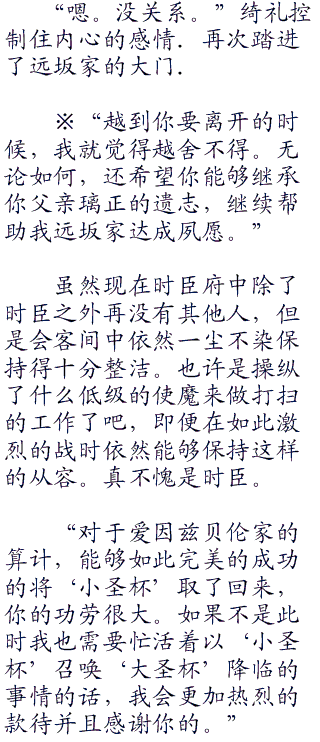 “嗯。没关系。”绮礼控
制住内心的感情．再次踏进
了远坂家的大门．
※“越到你要离开的时
候，我就觉得越舍不得。无
论如何，还希望你能够继承
你父亲璃正的遗志，继续帮
助我远坂家达成夙愿。”
虽然现在时臣府中除了
时臣之外再没有其他人，但
是会客间中依然一尘不染保
持得十分整洁。也许是操纵
了什么低级的使魔来做打扫
的工作了吧，即便在如此激
烈的战时依然能够保持这样
的从容。真不愧是时臣。
“对于爱因兹贝伦家的
算计，能够如此完美的成功
的将‘小圣杯’取了回来，
你的功劳很大。如果不是此
时我也需要忙活着以‘小圣
杯’召唤‘大圣杯’降临的
事情的话，我会更加热烈的
款待并且感谢你的。”